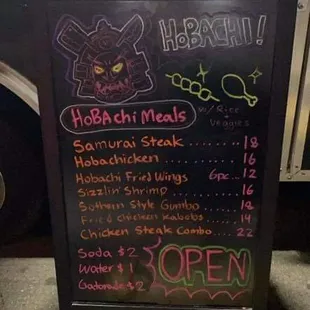 HOBACHI!
HoBAchi Meals
w/ Rice +
veggies
Samurai Steak ........ 18
Hobachicken ........ 16
Hobachi Fried Wings 6pc... 12
Sizzlin' Shrimp ........ 16
Suthern Style Gumbo ... 12
Fried Chicken Kabobs .... 14
Chicken Steak Combo ... 22
Soda $2
Water $1
Gatorade $2
OPEN